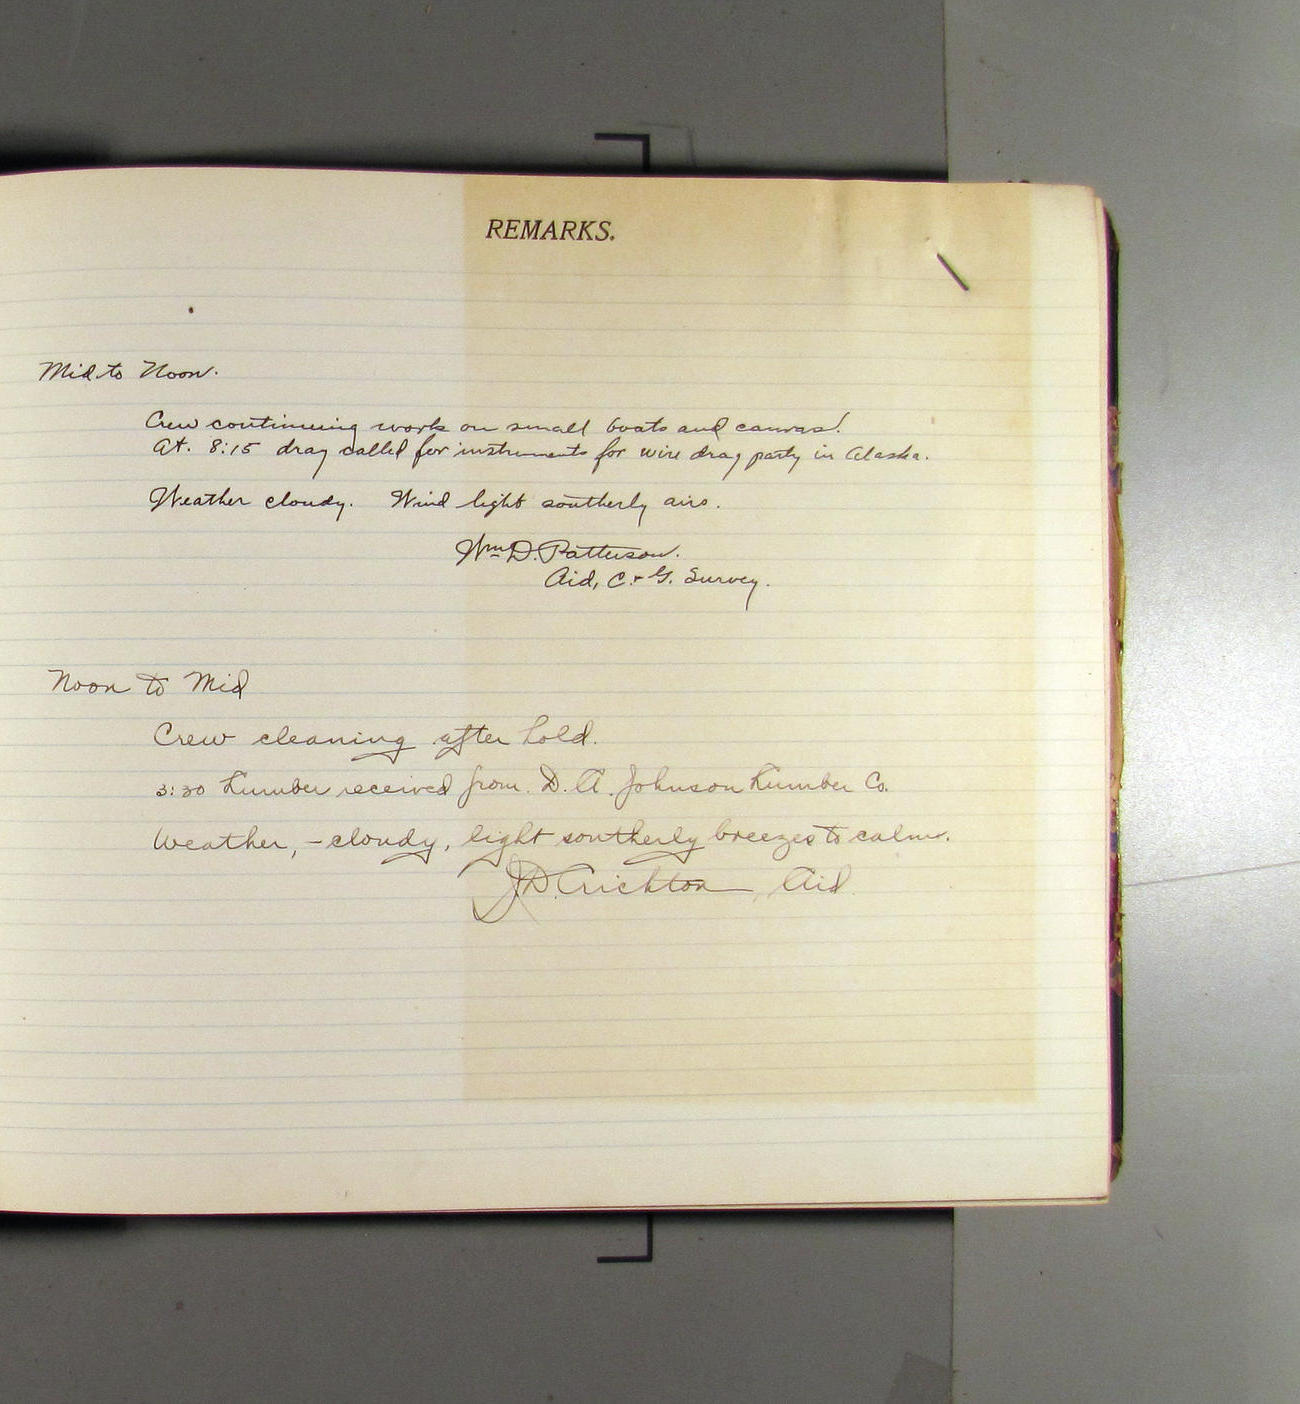 REMARKS.
Mid. to Noon.
Crew continuing work on small boats and canvas!
At. 8:15 dray called for instruments for wire drag party in Alaska.
Weather cloudy. Wind light southerly airs.
Wm D. Patterson.
Aid, C. & G. Survey.
Noon to Mid
Crew cleaning after hold.
3:30 Lumber received from D. A. Johnson Lumber Co.
Weather, - cloudy, light southerly breezes to calm.
J D. Crichton, Aid.